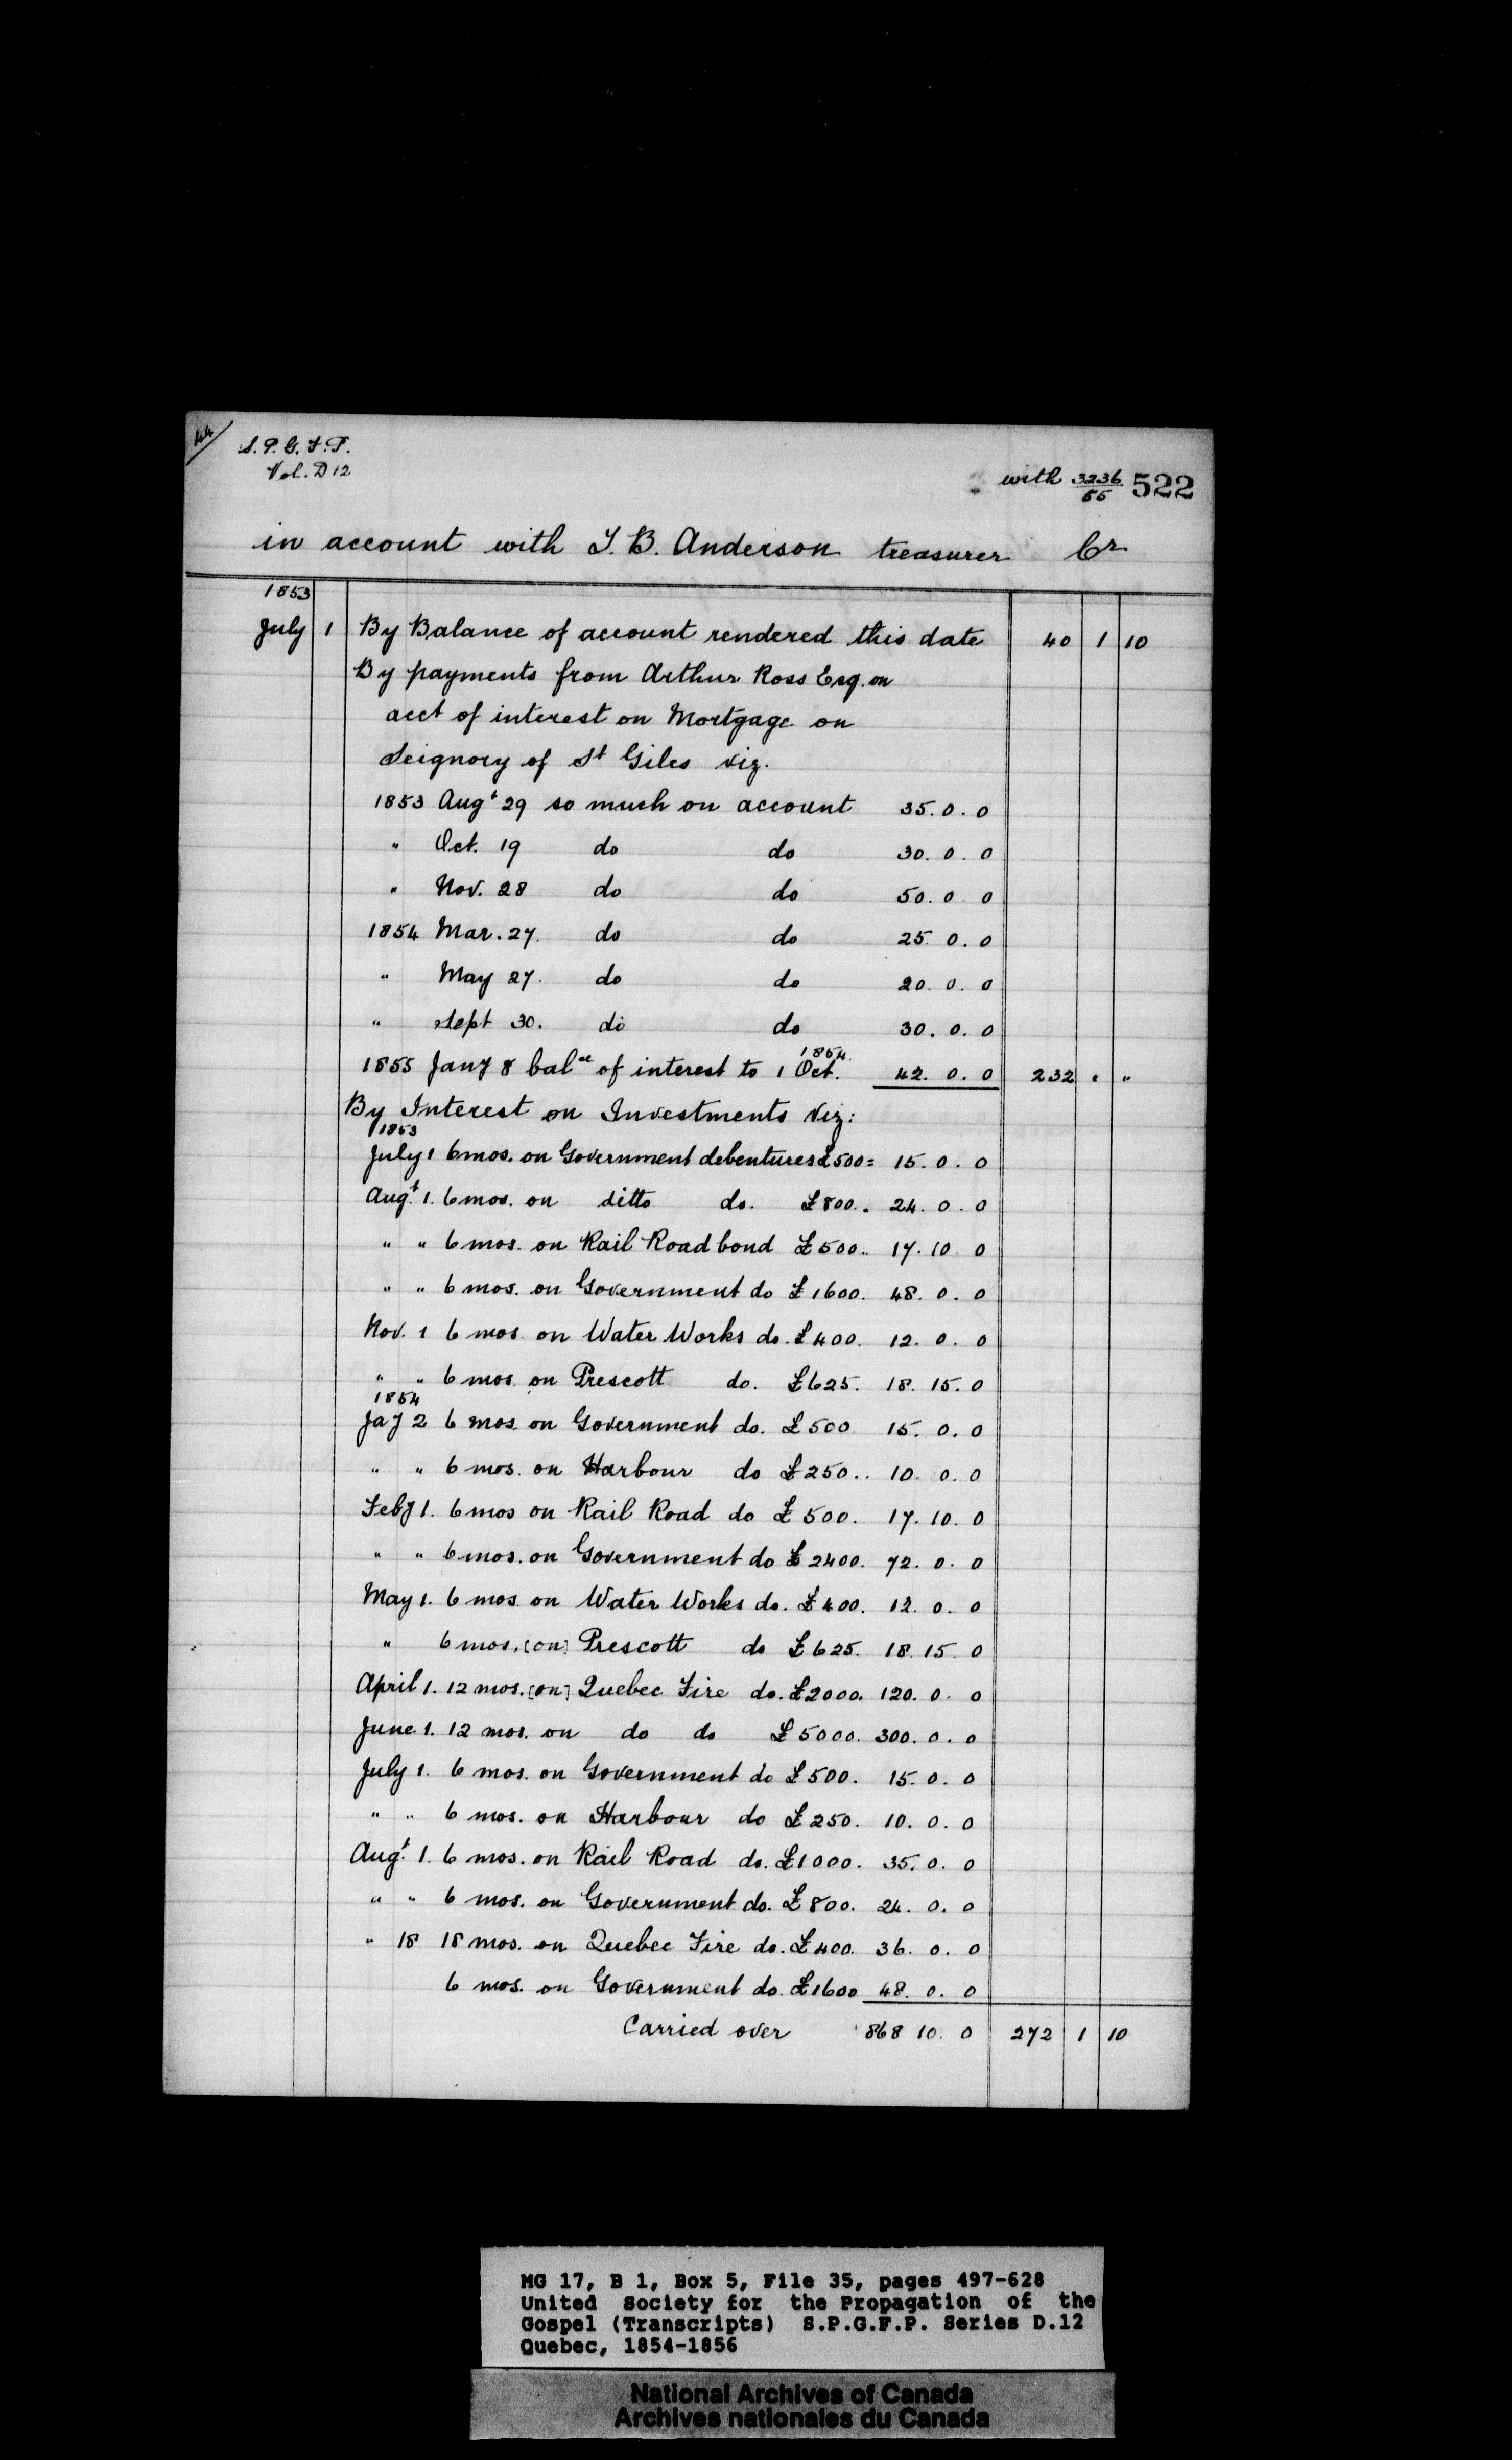 44
S. P. G. F. P.
Vol. D 12
with 3236/55 522
in account with T. B. Anderson treasurer Cr
1853
July 1 By Balance of account rendered this date 40 1 10
By payments from Arthur Ross Esq. on
acct of interest on Mortgage on
Seignory of St Giles viz.
1853 Augt 29 so much on account 35. 0. 0
" Oct. 19 do do 30. 0. 0
" Nov. 28 do do 50. 0 0
1854 Mar. 27. do do 25. 0. 0
" May 27. do do 20. 0. 0
" Sept 30. do do 30. 0. 0
1855 Jany 8 balce of interest to 1 Oct. 1854. 42. 0. 0 232 " "
By Interest on Investments viz:
1853
July 1 6 mos. on Government debentures £500 = 15. 0. 0
Augt. 1. 6 mos. on ditto do. £800. 24. 0. 0
" " 6 mos. on Rail Road bond £500. 17. 10. 0
" " 6 mos. on Government do £1600. 48. 0. 0
Nov. 1 6 mos. on Water Works do. £400. 12. 0. 0
" " 6 mos. on Prescott do. £625. 18. 15. 0
1854
Jay 2 6 mos. on Government do. £500 15. 0. 0
" " 6 mos. on Harbour do £250.. 10. 0. 0
Feby 1. 6 mos on Rail Road do £500. 17. 10. 0
" " 6 mos. on Government do £2400. 72. 0. 0
May 1. 6 mos. on Water Works do. £400. 12. 0. 0
" 6 mos. [on] Prescott do £625. 18. 15. 0
April 1. 12 mos. [on] Quebec Fire do. £2000. 120. 0. 0
June 1. 12 mos. on do do £5000. 300. 0. 0
July 1. 6 mos. on Government do £500. 15. 0. 0
" " 6 mos. on Harbour do £250. 10. 0. 0
Augt. 1. 6 mos. on Rail Road do. £1000. 35. 0. 0
" " 6 mos. on Government do. £800. 24. 0. 0
" 18 18 mos. on Quebec Fire do. £400. 36. 0. 0
6 mos. on Government do. £1600 48. 0. 0
Carried over 868 10. 0 272 1 10
MG 17, B 1, Box 5, File 35, pages 497-628
United Society for the Propagation of the
Gospel (Transcripts) S.P.G.F.P. Series D.12
Quebec, 1854-1856
National Archives of Canada
Archives nationales du Canada